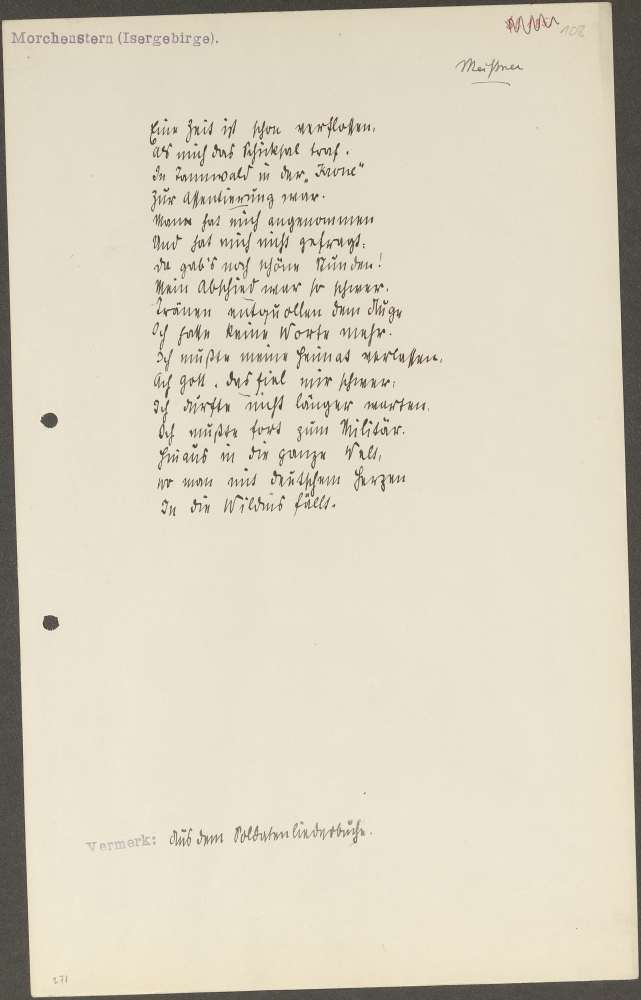 Morchenstern (Isergebirge).
108
Meißner
Eine Zeit ist schon verflossen,
als mich das Schicksal traf.
In Tannwald in der „Krone“
Zur Assentierung war.
Mann hat mich angenommen
Und hat mich nicht gefragt:
da gab's noch schöne Stunden!
Mein Abschied war so schwer.
Tränen entquollen dem Auge
Ich hatte keine Worte mehr.
Ich mußte meine Heimat verlassen,
Ach Gott, das fiel mir schwer;
Ich durfte nicht länger warten,
Ich mußte fort zum Militär.
Hinaus in die ganze Welt,
wo man mit deutschem Herzen
In die Wildnis fällt.
Vermerk: Aus dem Soldatenliederbuche.
271